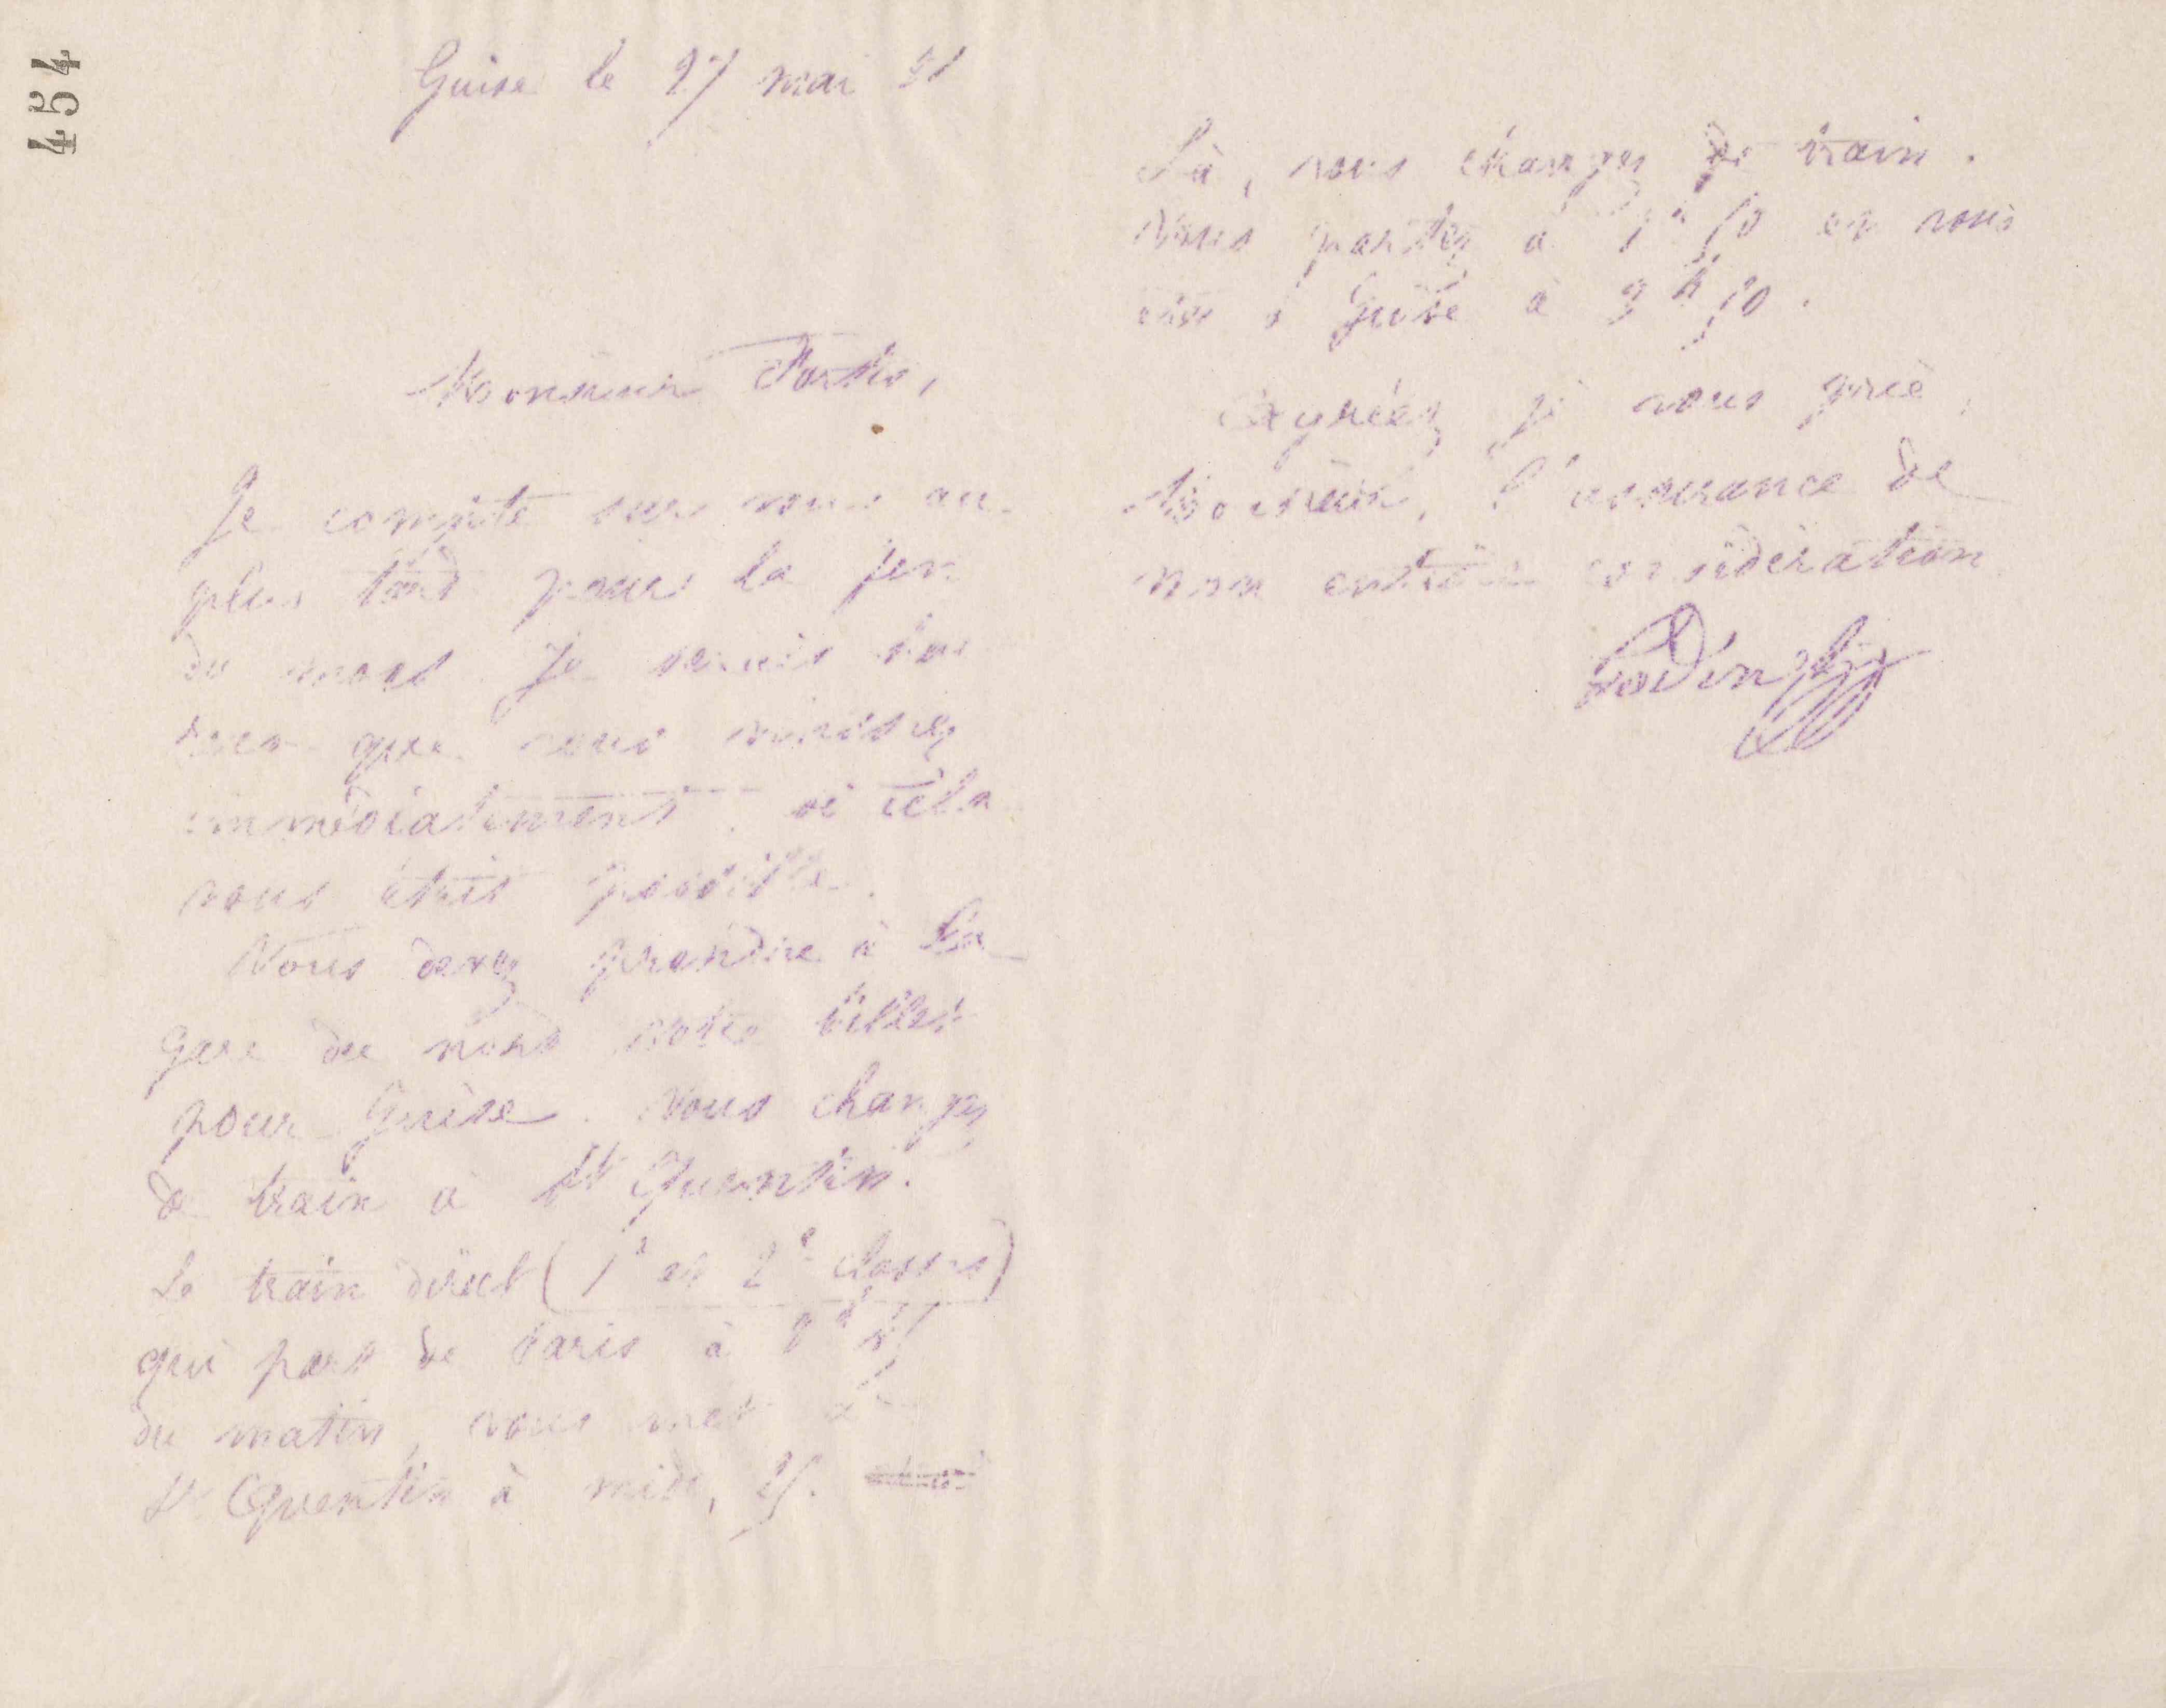 454
Guise le 27 mai 91
Monsieur
Je compte sur vous au
plus tard pour la fin
du mois. Je
que vous vinssiez
immédiatement si cela
vous était possible.
Vous devez prendre à la
gare du nord votre billet
pour Guise. Vous changez
de train à St Quentin.
Le train direct (1e et 2e classes)
qui part de Paris à
du matin, vous met à
St Quentin à midi, 25.
Là, vous changez de train.
Vous partez à 1h 50 et vous
à Guise à 3h 50.
Agréez je vous prie,
Monsieur, l'assurance de
mon entière considération